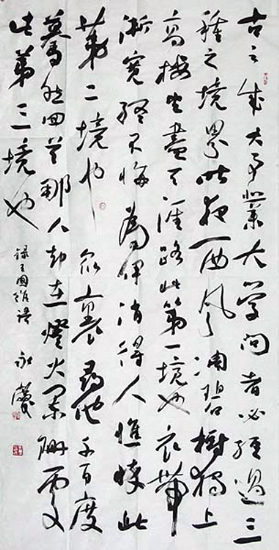 古之成大事業大學問者必經過三
種之境界昨夜西風凋碧樹獨上
高樓望盡天涯路此第一境也衣帶
漸寬終不悔為伊消得人憔悴此
第二境也眾裏尋他千百度
驀然回首那人却在燈火闌珊處
此第三境也
錄王國維語 永